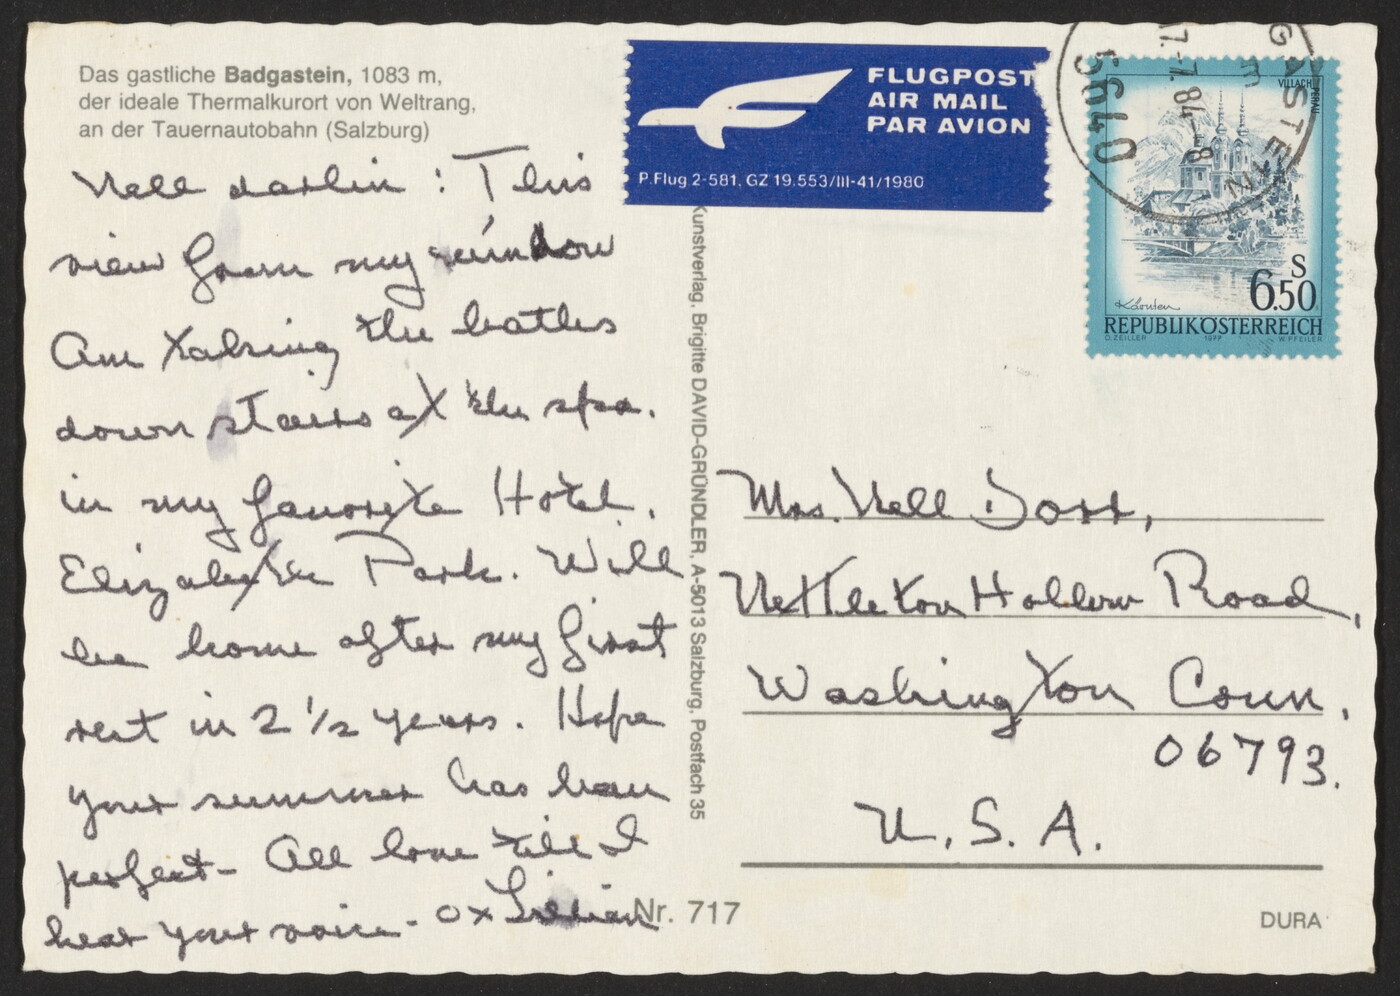 Das gastliche Badgastein, 1083 m,
der ideale Thermalkurort von Weltrang,
an der Tauernautobahn (Salzburg)
Nell darlin : This
view from my window
Am taking the baths
down stairs at the spa.
in my favorite Hotel.
Elizabethe Park. Will
be home after my first
rest in 2 1/2 years. Hope
your summer has been
perfect - All love till I
hear your voice - ox Lillian
Kunstverlag, Brigitte DAVID-GRÜNDLER, A-5013 Salzburg, Postfach 35
Nr. 717
FLUGPOST
AIR MAIL
PAR AVION
P.Flug 2-581, GZ 19.553/III-41/1980
GASTEIN
17.-7.84-8
5640
VILLACH
PERAU
S
6.50
REPUBLIK ÖSTERREICH
O. ZEILER 1977 W. PFEILER
Mrs. Nell Dorr,
Nettleton Hollow Road,
Washington Conn,
06793.
U.S.A.
DURA